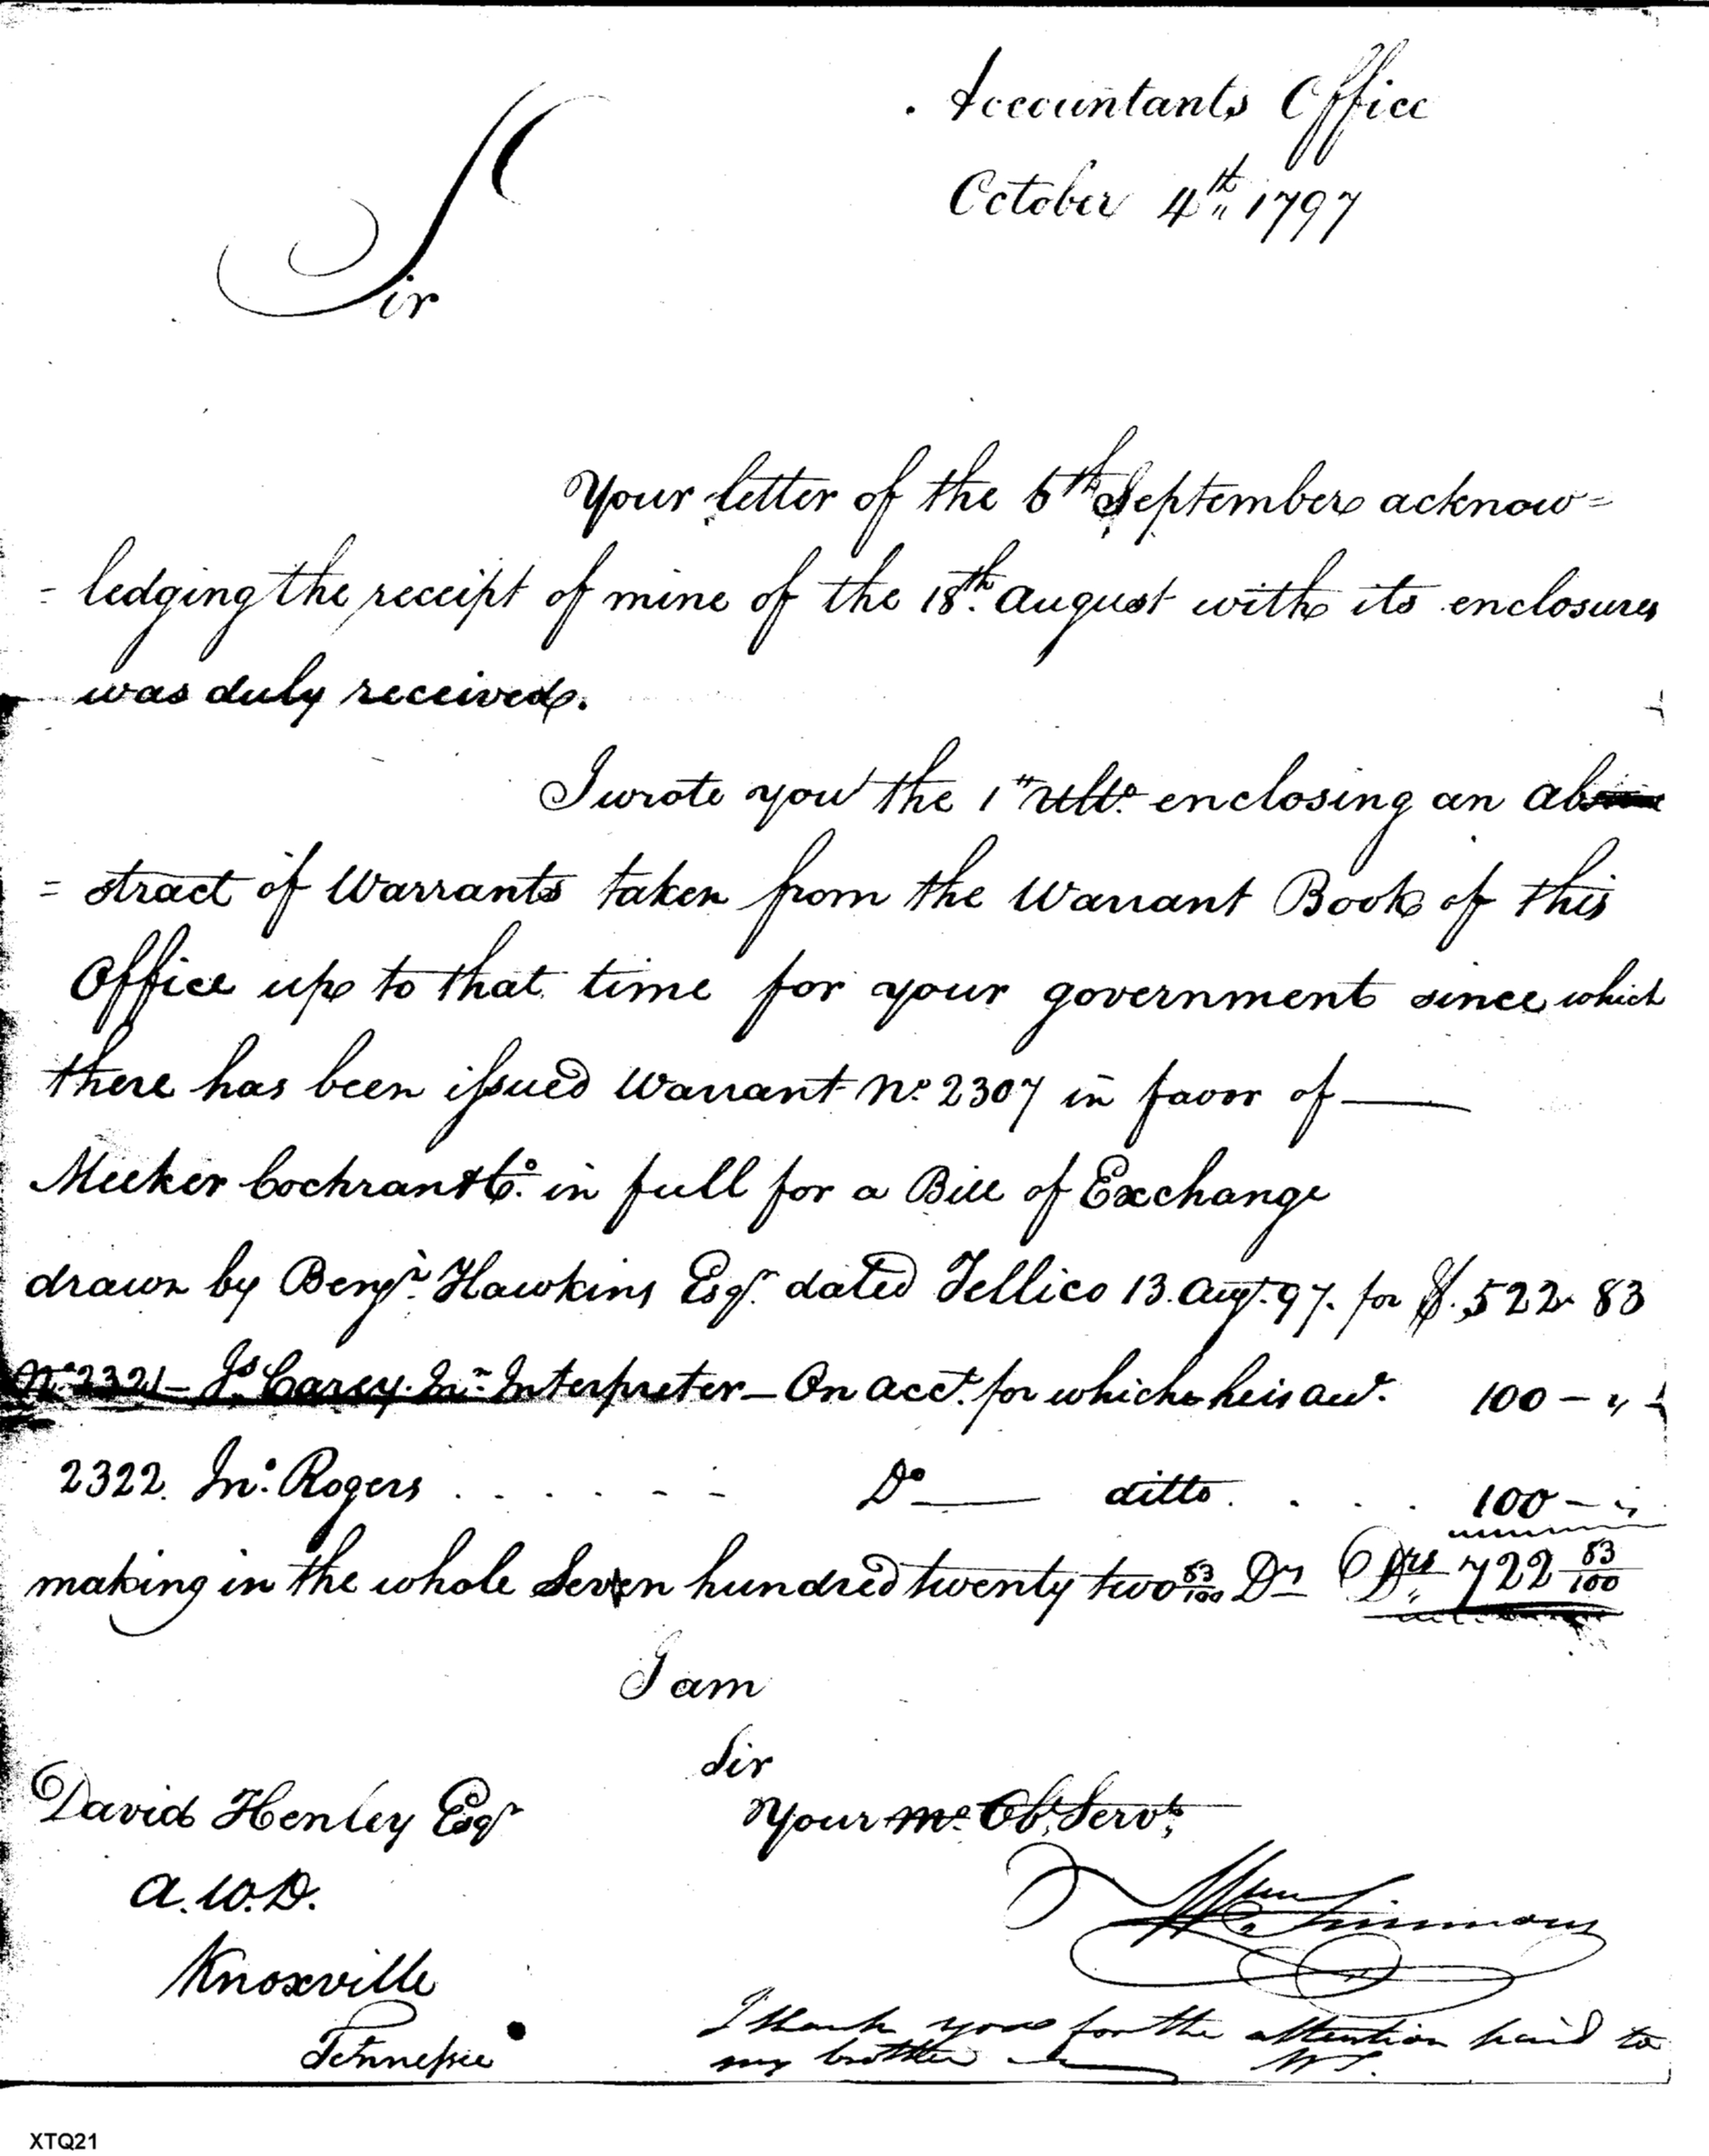 Accountants Office
October 4th 1797
Sir
Your letter of the 5th September acknow=
=ledging the receipt of mine of the 18th. August with its enclosures
was duly received.
I wrote you the 1st Ulto. enclosing an ab
=stract of Warrants taken from the Warrant Book of this
Office up to that time for your government since which
there has been issued Warrant No. 2307 in favor of
Meeker Cochran & Co. in full for a Bill of Exchange
drawn by Benjn. Hawkins Esqr. dated Tellico 13. Augt. 97. for $.522 83
No. 2321 - Js. Carey. Inr. Interpreter - On acct. for which he is acct. 100 - "
2322. Jno. Rogers . . . . . - - Do — ditto . . . . 100 - "
making in the whole Seven hundred twenty two 83/100 Drs Drs 722 83/100
I am
Sir
Your Mo. Ob. Servt.
David Henley Esqr
A.W.D.
Knoxville
Tennessee
Wm Simmons
I thank you for the attention paid to
my brother W S.
XTQ21